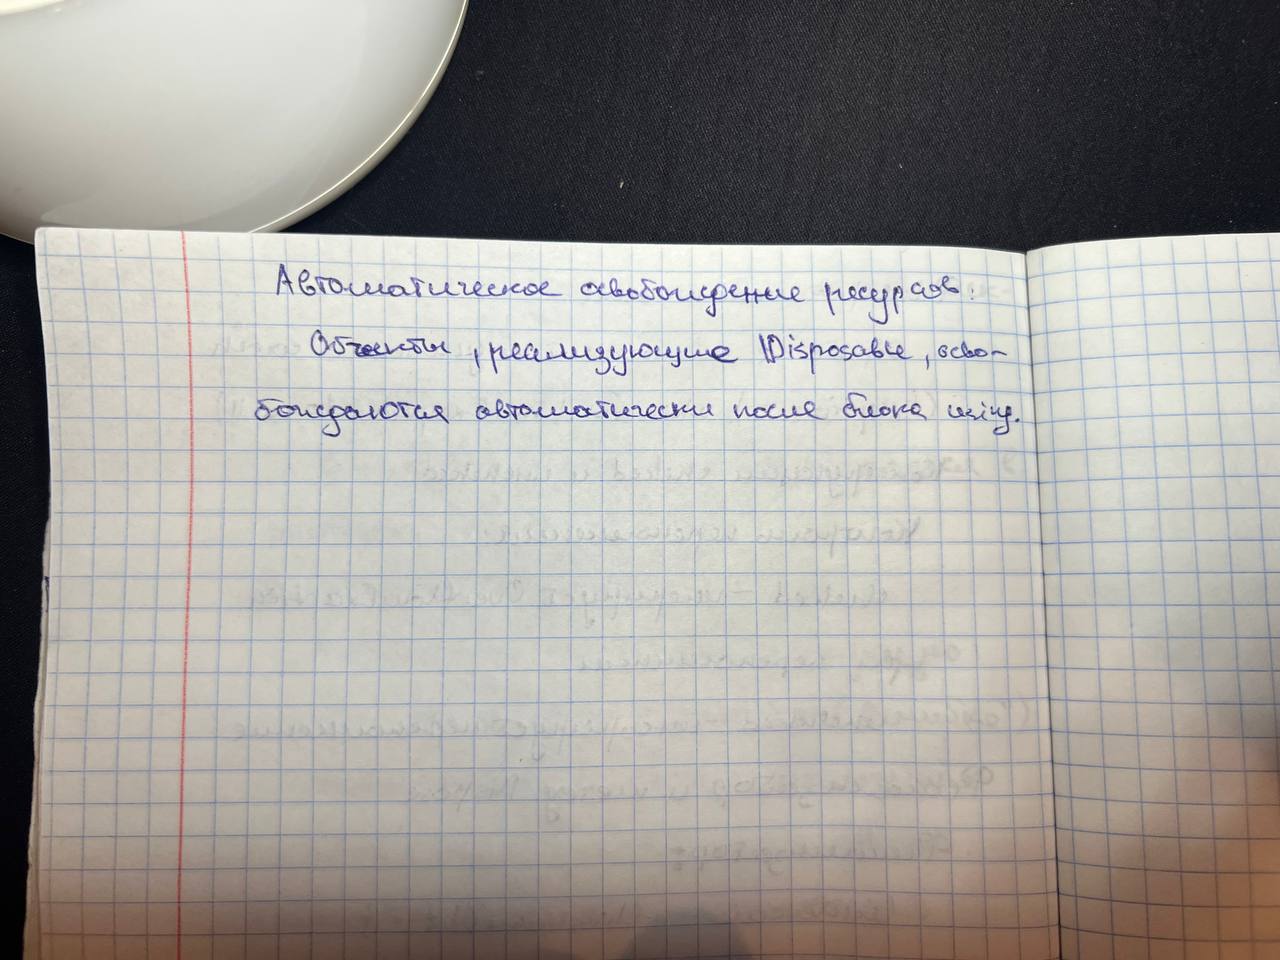 Автоматическое освобождение ресурсов:
Объекты, реализующие IDisposable, осво-
бождаются автоматически после блока using.